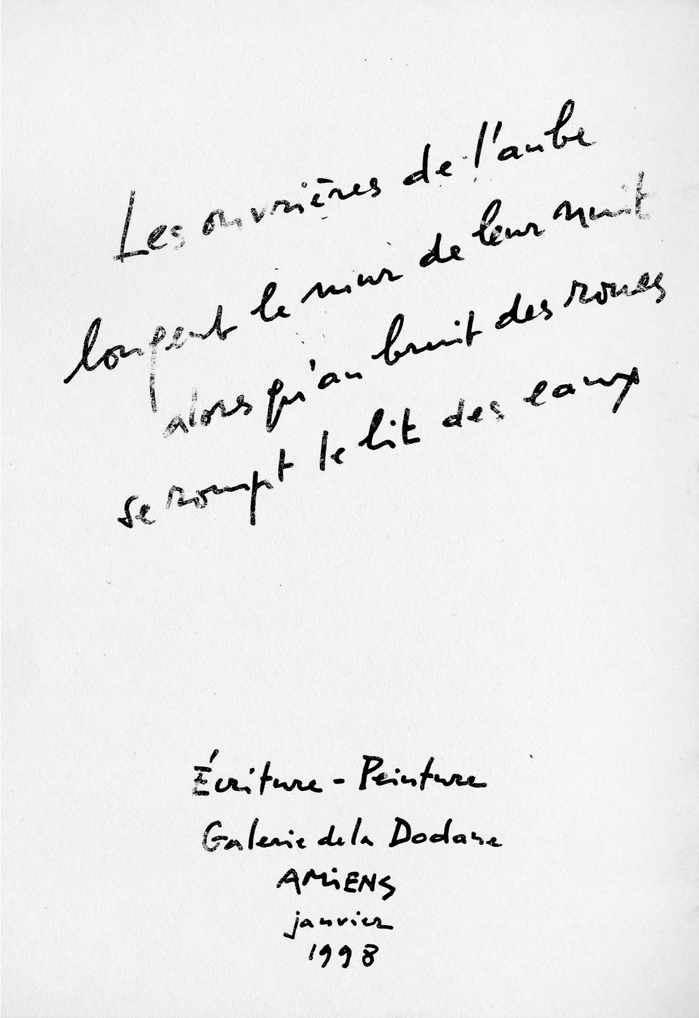 Les ouvrières de l'aube
longent le mur de leur nuit
alors qu'au bruit des roues
se rompt le lit des eaux
Écriture - Peinture
Galerie de la Dodane
AMiENS
janvier
1998